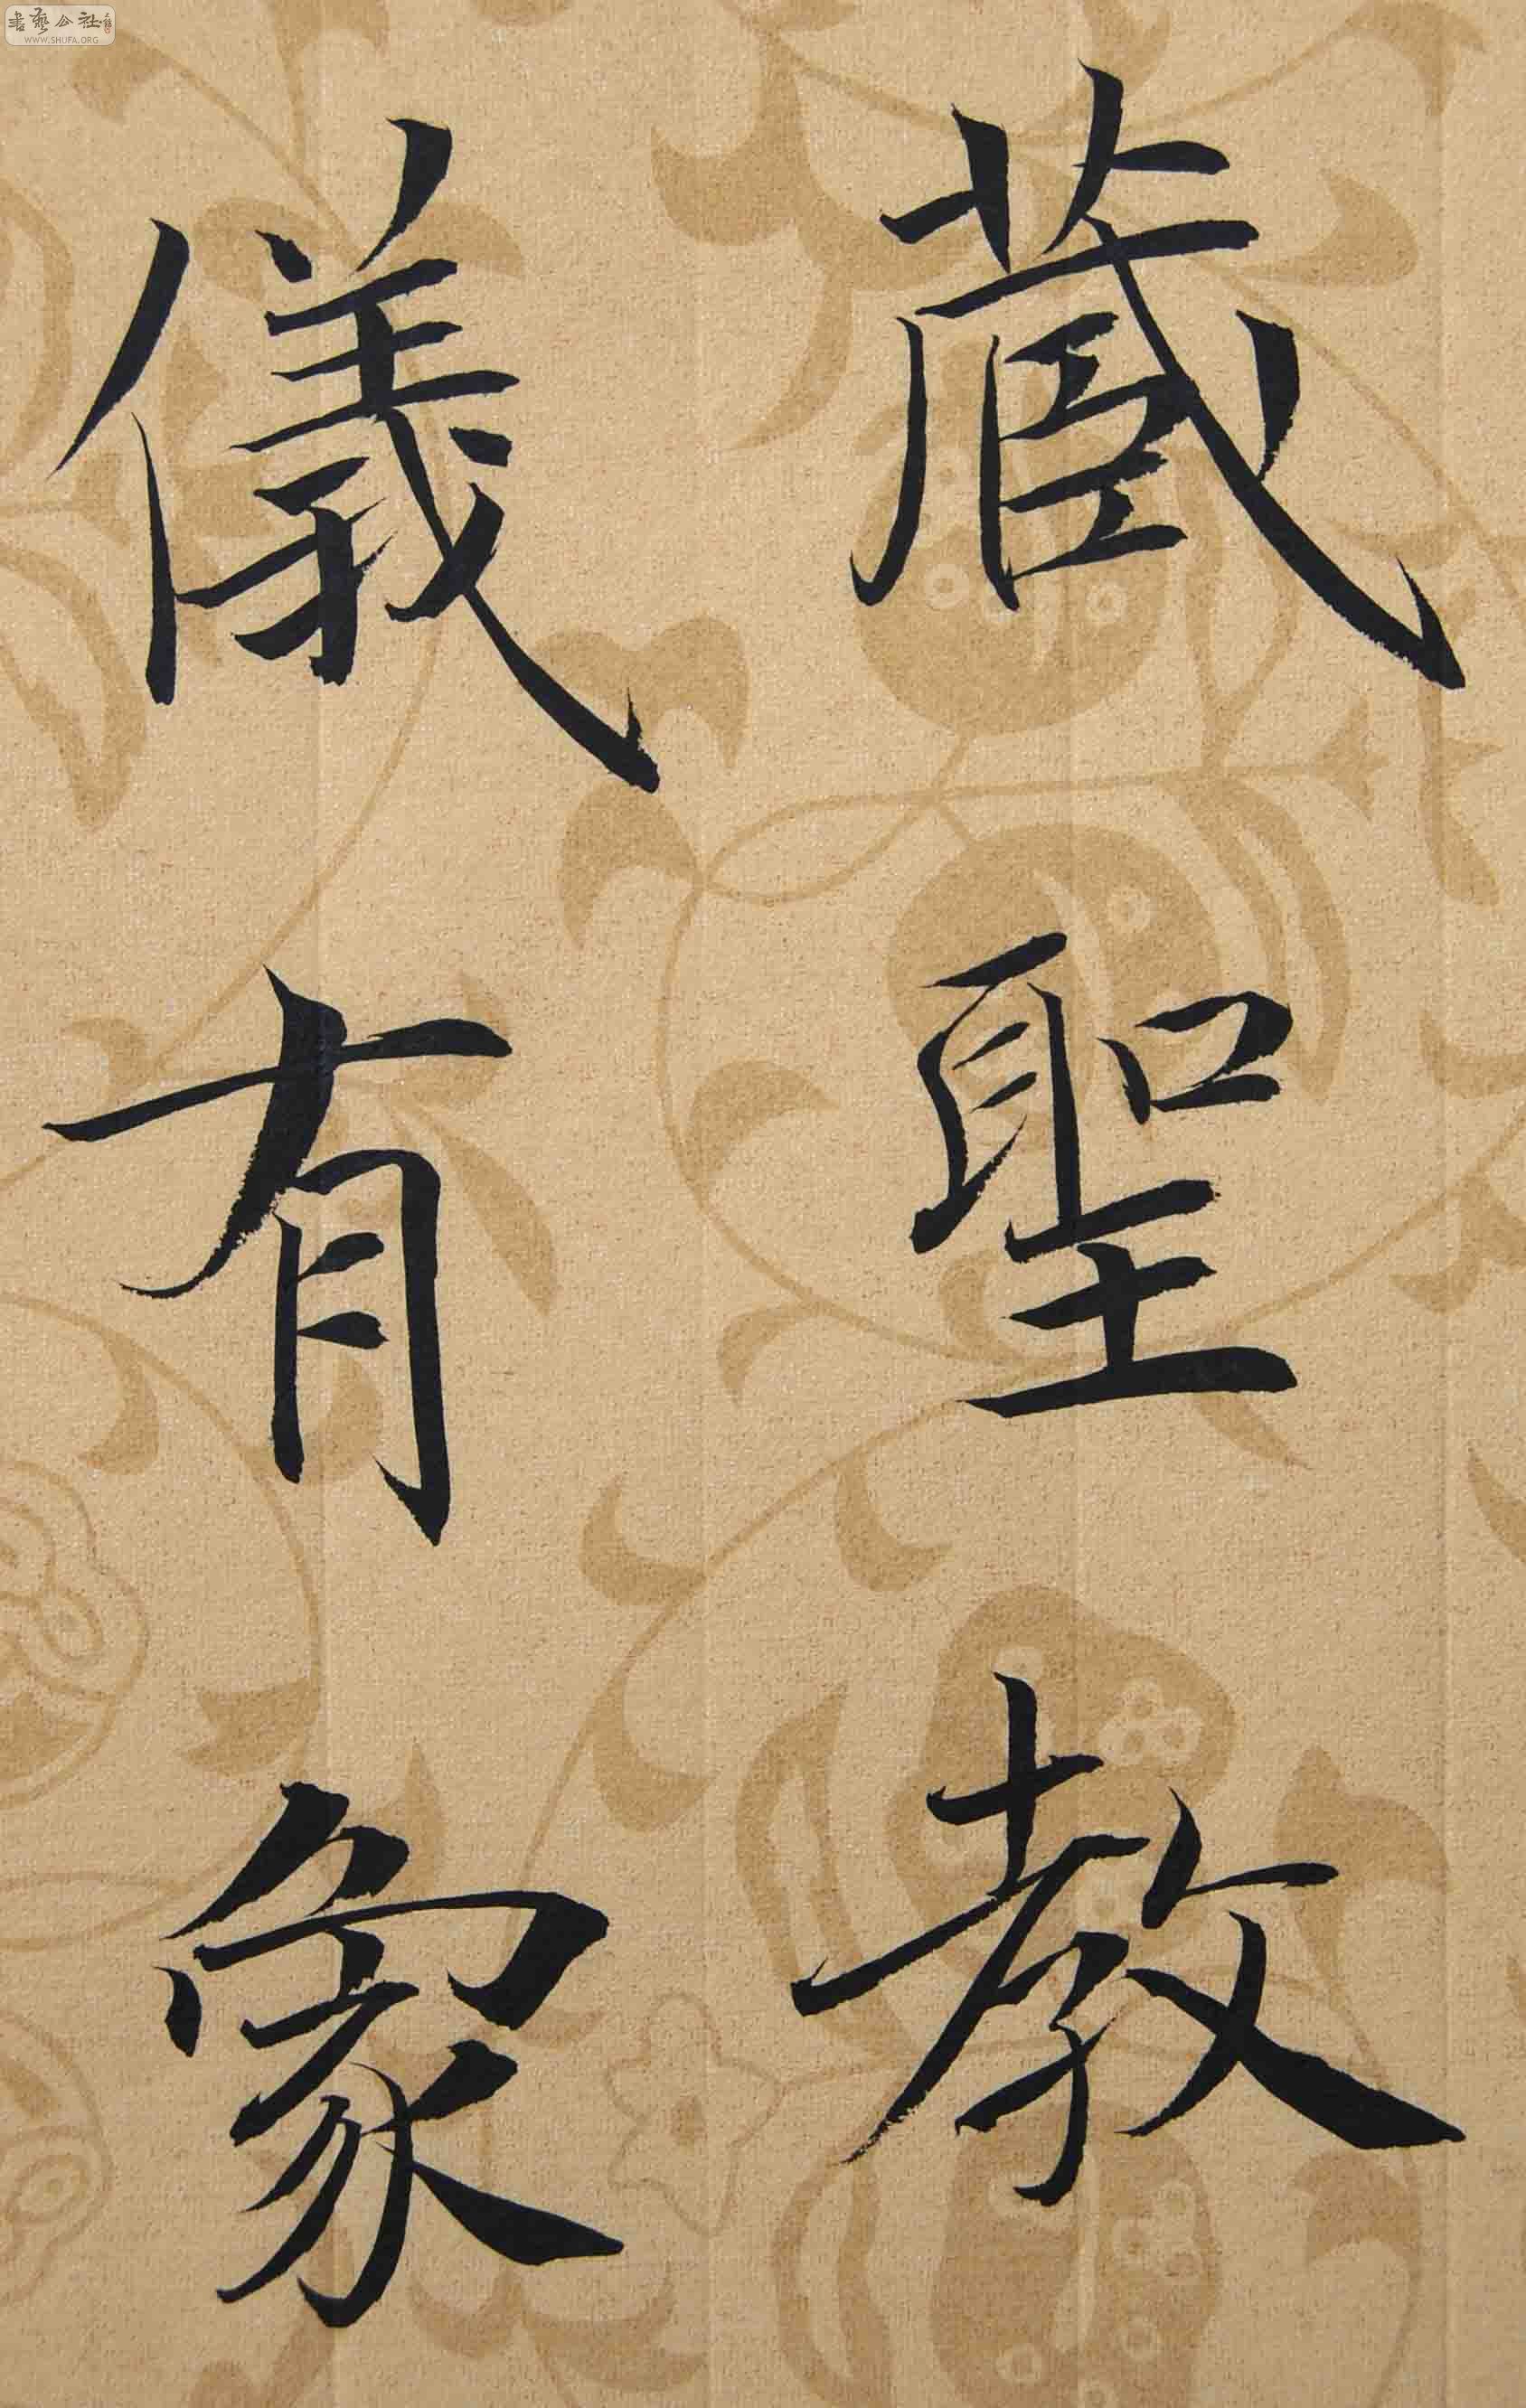 藏聖教
儀有象
書藝公社
WWW.SHUFA.ORG